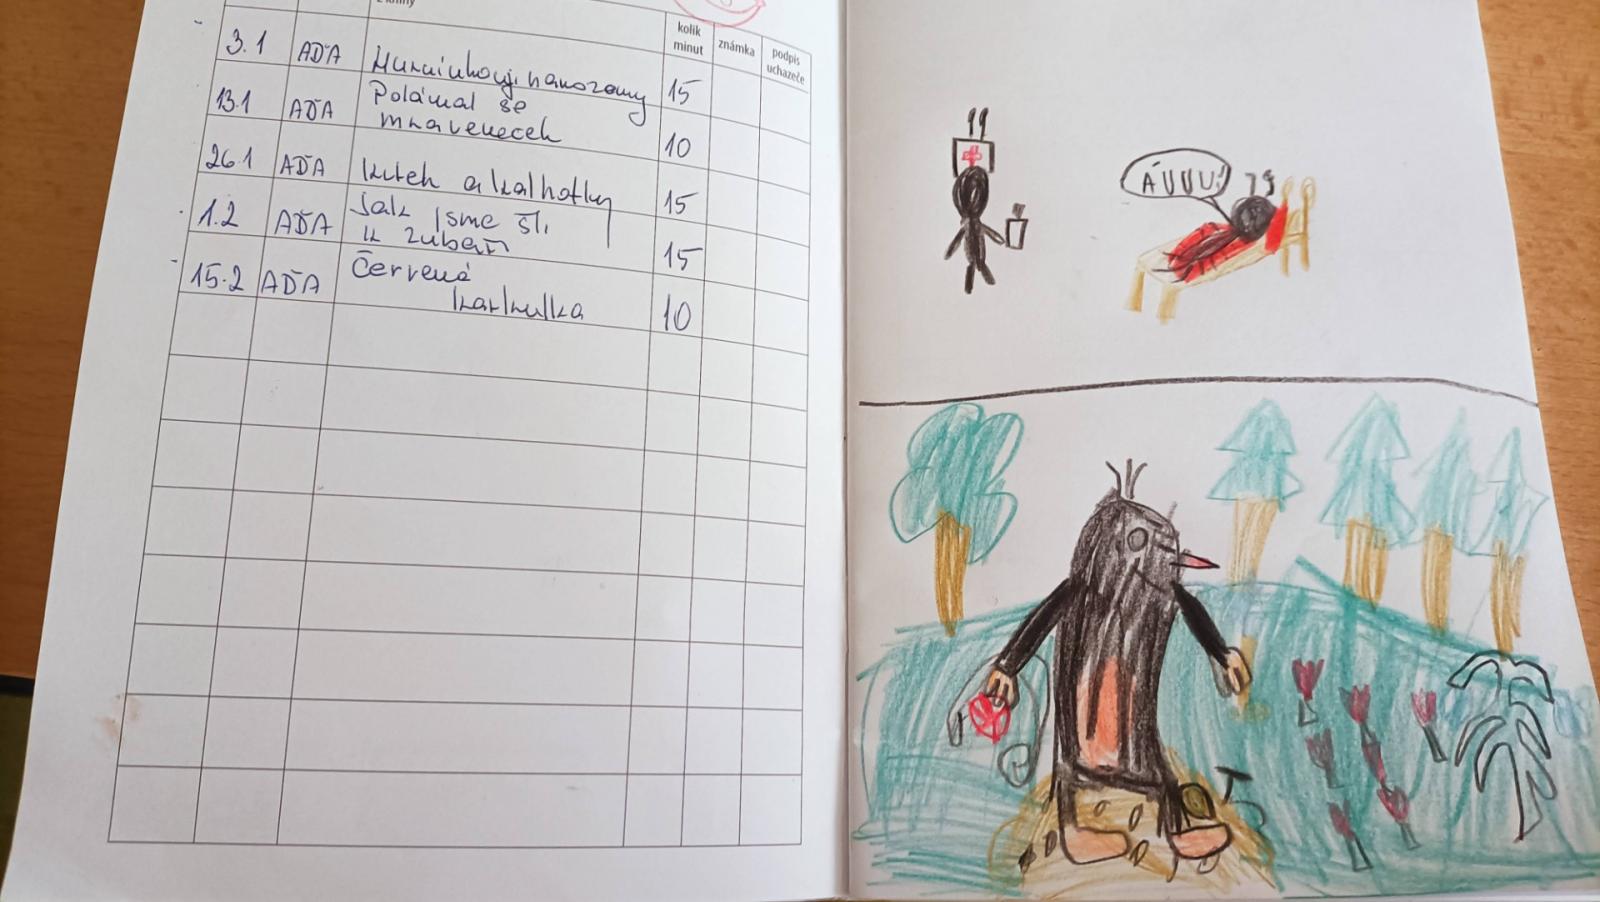 z knihy
kolik
minut
známka
podpis
uchazeče
3.1 AĎA narozeniny 15
13.1 AĎA Polámal se
mraveneček 10
26.1 AĎA krtek a kalhotky 15
1.2 AĎA Jak jsme šli
k zubaři 15
15.2 AĎA Červená
karkulka 10
ÁUUU!